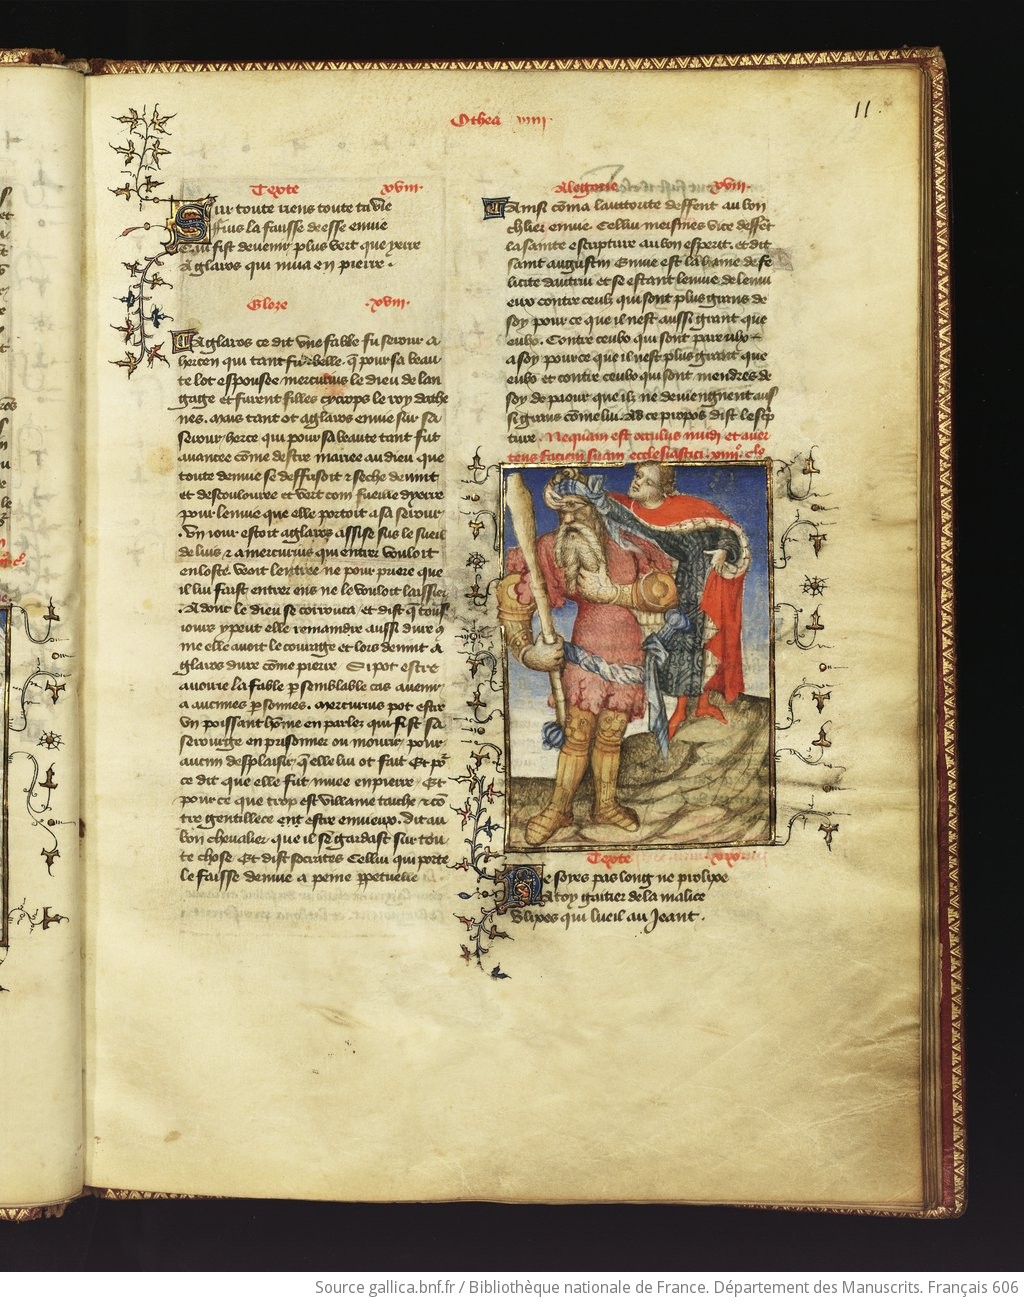 Othea viiii
11
Texte xviii.
Sur toute riens toute ta vie
Fuis la fausse deesse envie
Qui fist devenir plus vert que yerre
Aglaros qui mua en pierre.
Glose .xviii.
Aglaros ce dit une fable fu serour a
hercen qui tant fu belle. q̄ pour sa beau
te lot espousee mercurius le dieu de lan
gage et furent filles cycrops le roy dathe
nes. Mais tant ot aglaros envie sur sa
serour herce qui pour sa beaute tant fut
avancee cōme destre mariee au dieu que
toute denvie se deffrisoit ⁊ seche devint
et descoulouree et vert com fueille dyerre
pour lenvie que elle portoit a sa serour
.Un iour estoit aglaros assise sus le sueil
de luis ⁊ a mercurius qui entrer vouloit
en loste. veoit lentree ne pour priere que
il lui faist entrer ens ne le vouloit laissier
.Adont le dieu se corrouca et dist q̄ tous
iours y peust elle remaindre aussi dure cō
me elle avoit le courage et lors devint a
glaros dure cōme pierre Si pot estre
avoiree la fable p semblable cas avenir
a aucunes psonnes. Mercurius pot estre
un poissant hōme en parler qui fist sa
serourge enprisonner ou mourir pour
aucun desplaisir q̄ elle lui ot fait Et pō
ce dit que elle fut muee en pierre. Et
pour ce que trop est villaine tache ⁊ cō
tre gentillece est estre envieux. dit au
bon chevalier que il se gardast sur tou
te chose Et dist socrates Cellui qui porte
le faisse denvie a peine ppetuelle
Alegorie xviii.
Ainsi cōme lauttorite deffent au bon
chlier envie. Cellui meismes vice deffēt
la sainte escripture au bon esperit. et dit
saint augustin Envie est la haine de fe
licite dautrui et se estant lenvie de lenvi
eux contre ceulx qui sont plus grans de
soy pour ce que il nest aussi grant que
eulx. Contre ceulx qui sont pareulx
a soy pour ce que il nest plus grant que
eulx et contre ceulx qui sont mendres de
soy de paour que ilz ne deviengnent aus
si grans cōme lui. A ce propos dist lescp
ture. Nequam est occulus invidi et aver
tens faciem suam ecclesiastici. xiiii. c̄.
Texte xix
Ne soyes pas long ne prolixe
A toy gaitier de la malice
Ulixes qui lueil au Jeant.
Source gallica.bnf.fr / Bibliothèque nationale de France. Département des Manuscrits. Français 606